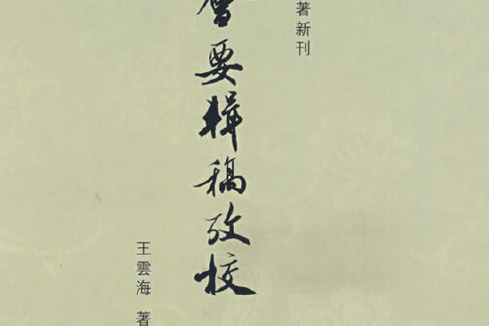 著新刊
會要輯稿攷校
王雲海 著